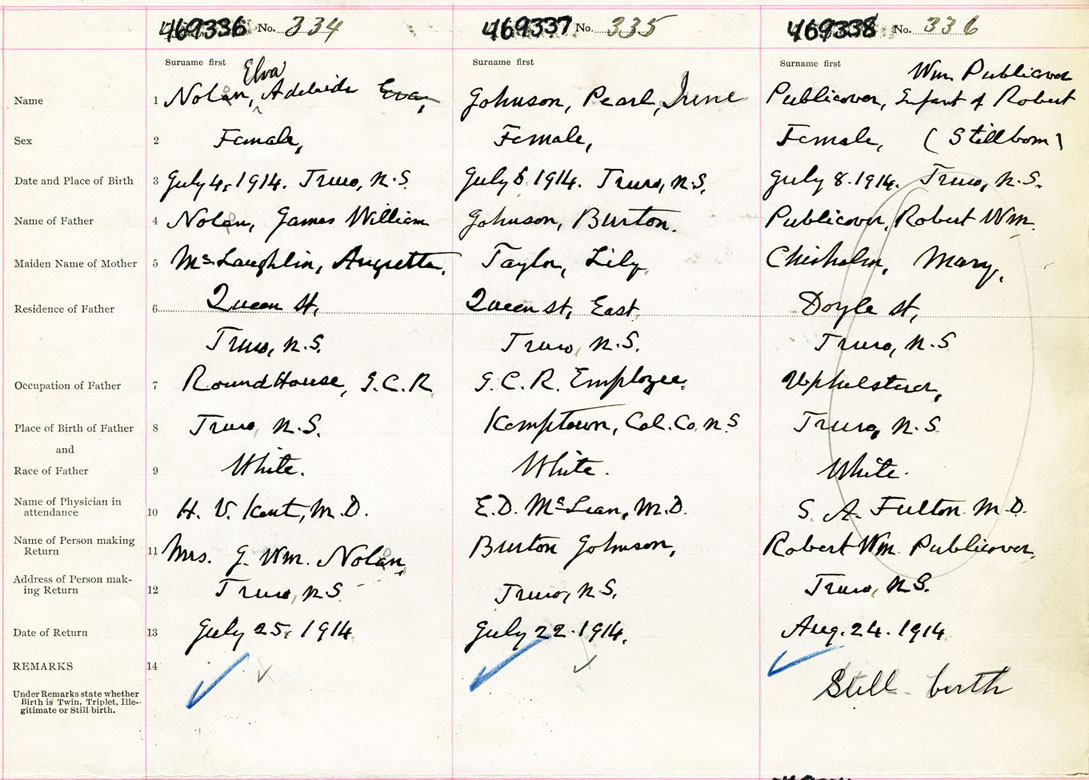 469336 No. 334 469337 No. 335 469338 No. 336
Surname first Surname first Surname first
Elva Wm Publicover
Name 1 Nolan, Adelaide Eva, Johnson, Pearl, Irene Publicover, Enfant of Robert
Sex 2 Female, Female, Female, (Stillborn)
Date and Place of Birth 3 July 4, 1914. Truro, N.S. July 6 1914. Truro, N.S. July 8. 1914. Truro, N.S.
Name of Father 4 Nolan, James William Johnson, Burton. Publicover, Robert Wm.
Maiden Name of Mother 5 McLaughlin, Augretta. Taylor, Lily, Chisholm, Mary,
Residence of Father 6 Queen St, Queen st, East, Doyle st,
Truro, N.S. Truro, N.S. Truro, N.S
Occupation of Father 7 Round House, I.C.R I.C.R. Employee, Upholsterer,
Place of Birth of Father 8 Truro, N.S. Kemptown, Col. Co. N S Truro, N.S
and
Race of Father 9 White. White. White.
Name of Physician in
attendance 10 H. V. Kent, M.D. E.D. McLean, M.D. S. A. Fulton M.D.
Name of Person making
Return 11 Mrs. J. Wm. Nolan, Burton Johnson, Robert Wm Publicover,
Address of Person mak-
ing Return 12 Truro, N S Truro, N S. Truro, N.S.
Date of Return 13 July 25, 1914 July 22. 1914. Aug. 24. 1914
REMARKS 14
Under Remarks state whether
Birth is Twin, Triplet, Ille-
gitimate or Still birth.
Still birth